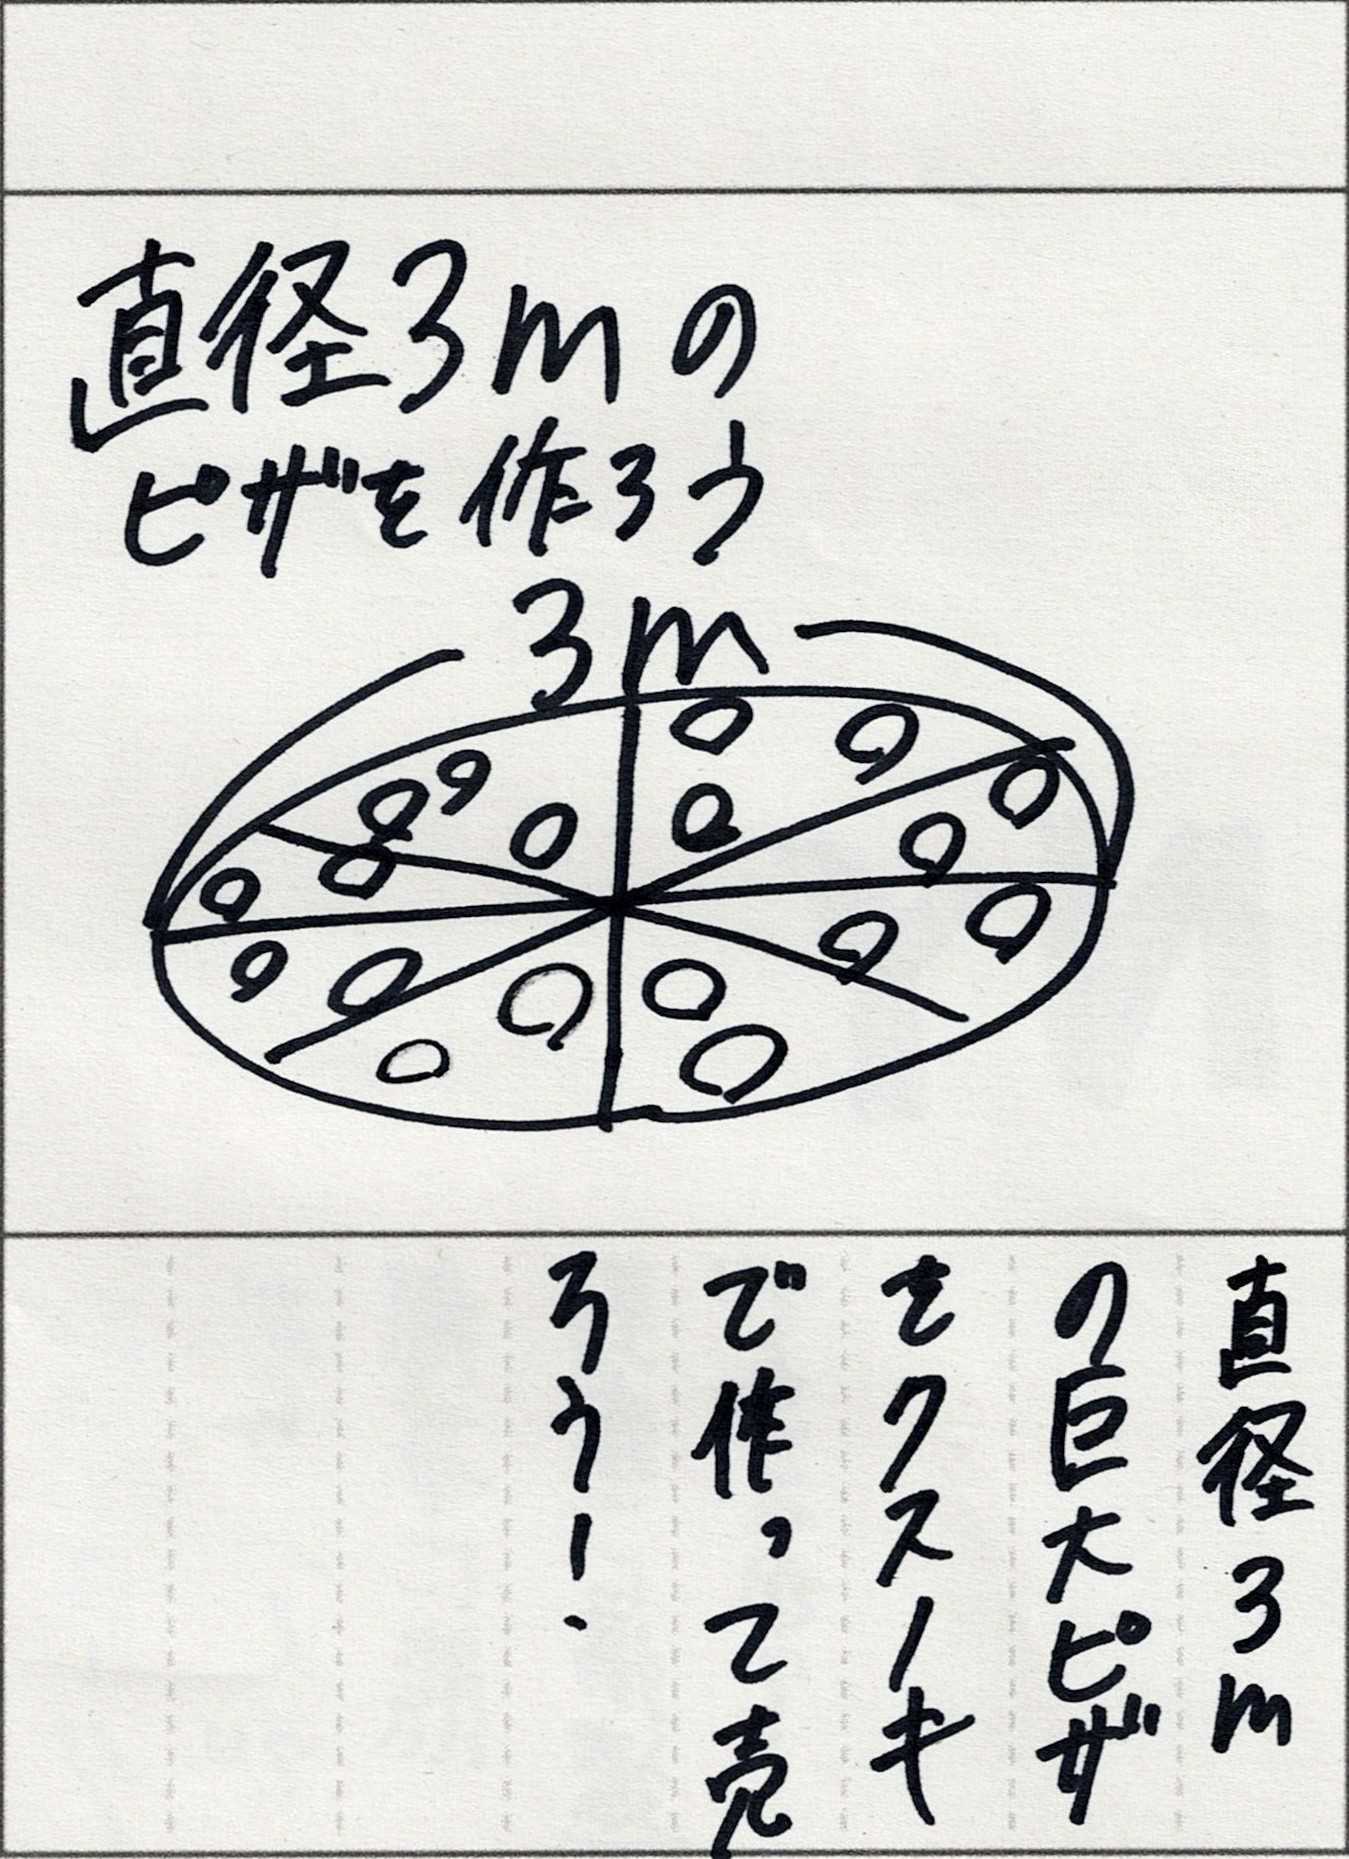 直径3mの
ピザを作ろう
3m
直径3m
の巨大ピザ
をクスノキ
で作って売
ろう!